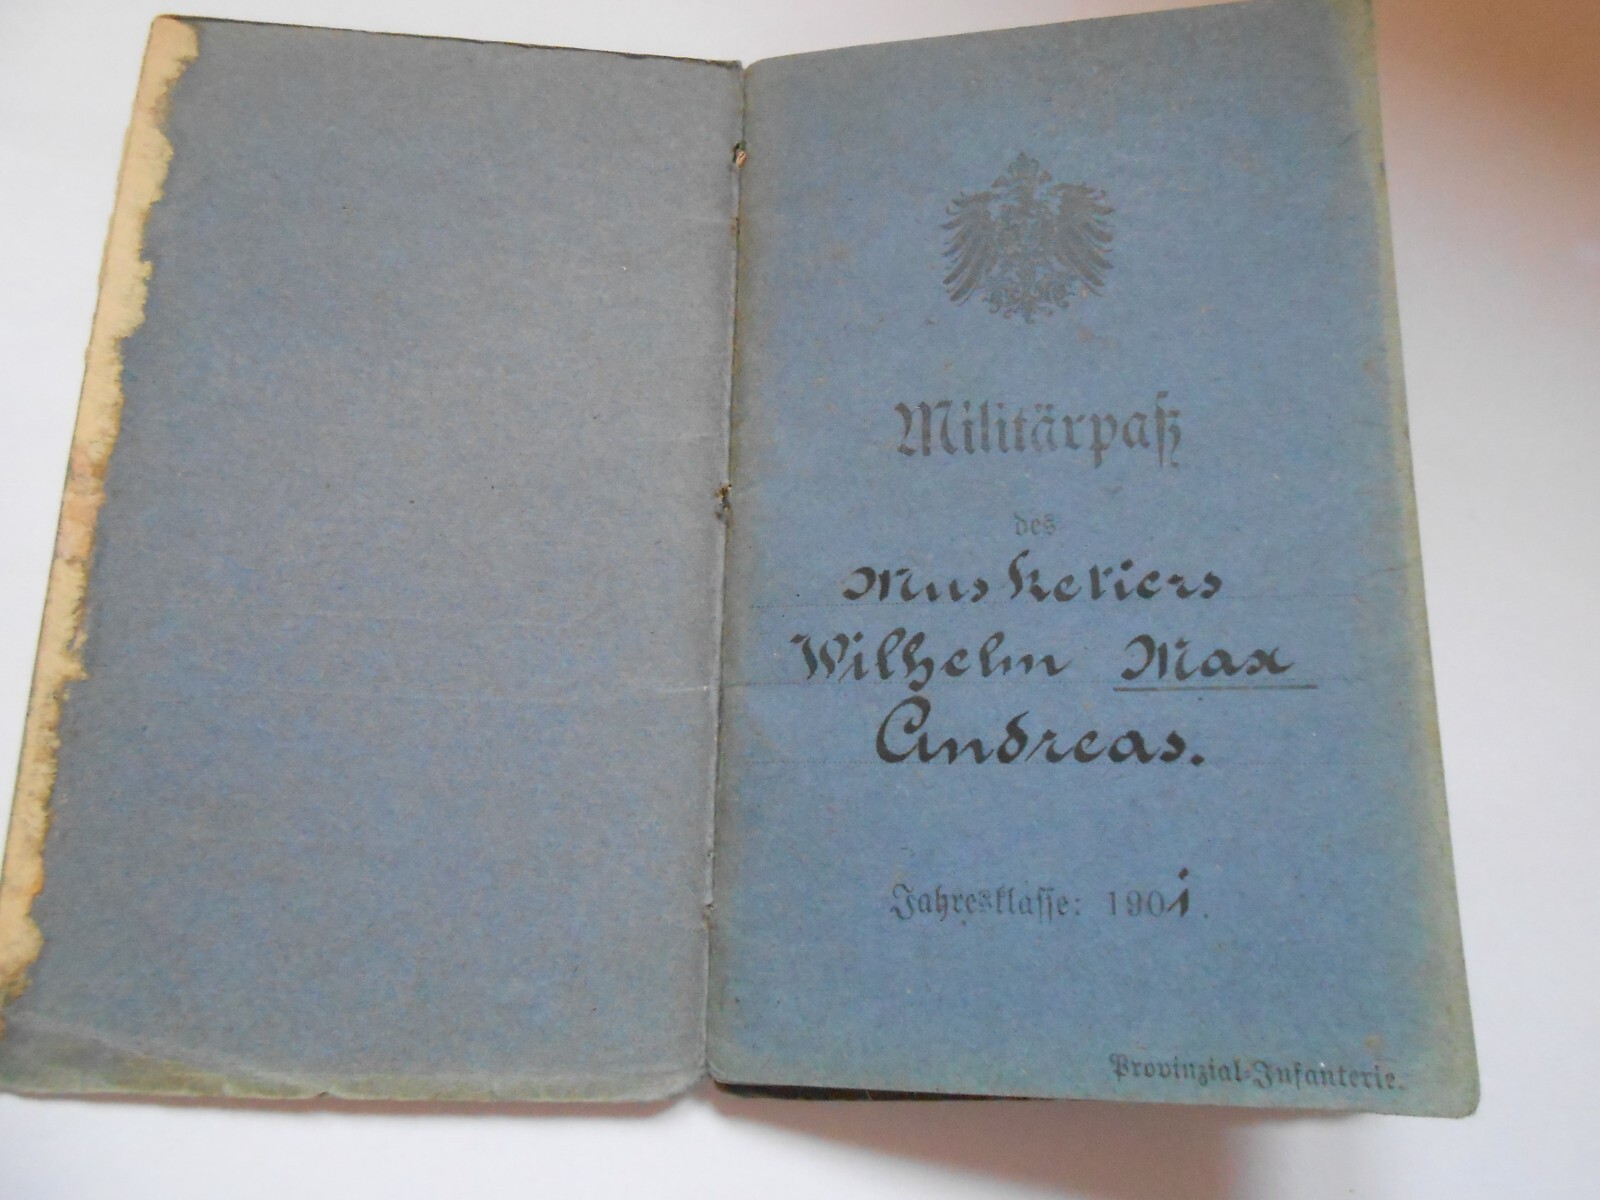 Militärpaß
des
Musketiers
Wilhelm Max
Andreas.
Jahresklasse: 1901.
Provinzial-Infanterie.